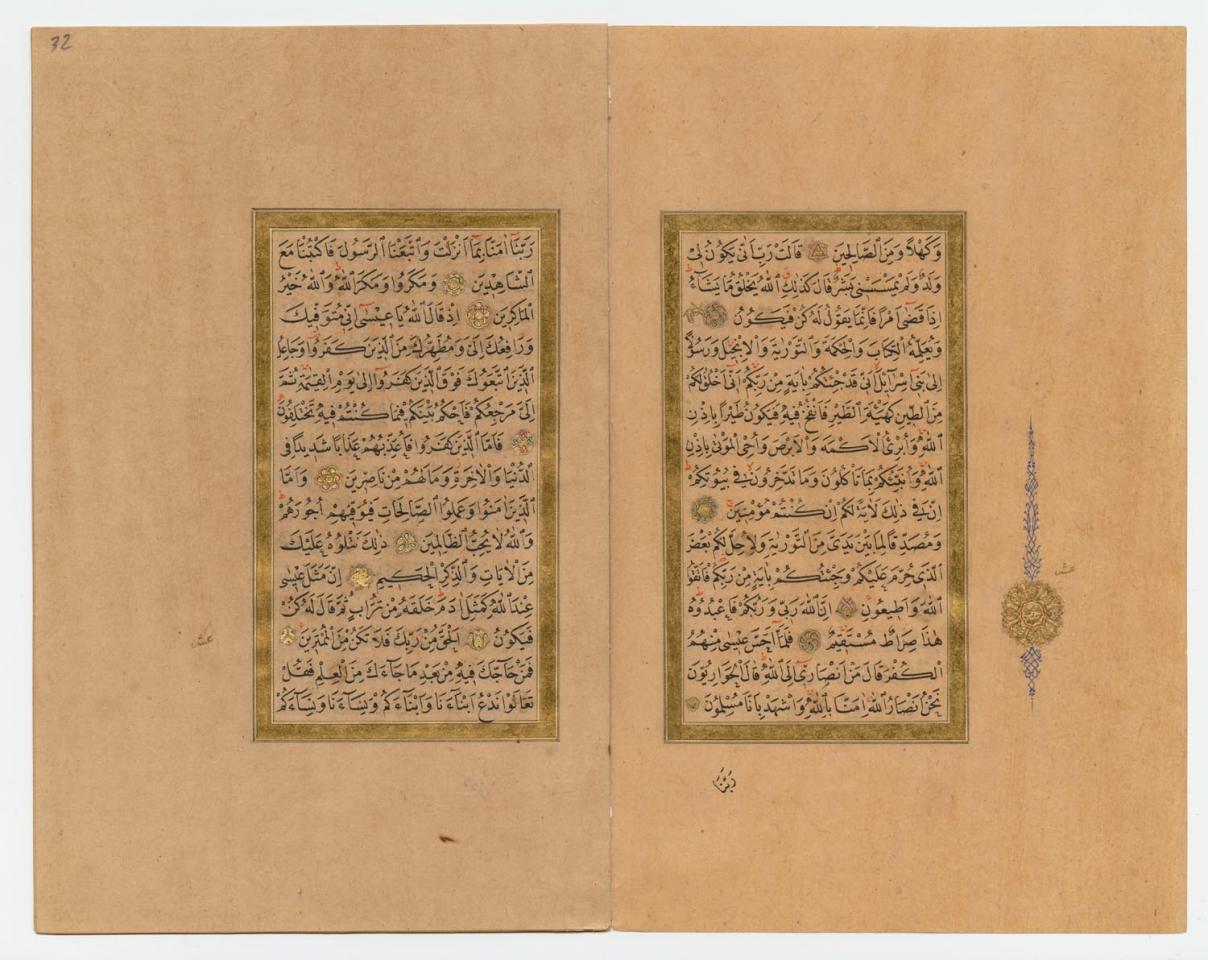 وَكَهْلًا وَمِنَ الصَّالِحِينَ قَالَتْ رَبِّ اَنّٰى يَكُونُ لٖى
وَلَدٌ وَلَمْ يَمْسَسْنٖى بَشَرٌ قَالَ كَذٰلِكِ اللّٰهُ يَخْلُقُ مَا يَشَٓاءُ
اِذَا قَضٰٓى اَمْرًا فَاِنَّمَا يَقُولُ لَهُ كُنْ فَيَكُونُ
وَيُعَلِّمُهُ الْكِتَابَ وَالْحِكْمَةَ وَالتَّوْرٰيةَ وَالْاِنْجٖيلَ وَرَسُولًا
اِلٰى بَنٖٓى اِسْرَٓائٖلَ اَنّٖى قَدْ جِئْتُكُمْ بِاٰيَةٍ مِنْ رَبِّكُمْ اَنّٖٓى اَخْلُقُ لَكُمْ
مِنَ الطّٖينِ كَهَيْـَٔةِ الطَّيْرِ فَاَنْفُخُ فٖيهِ فَيَكُونُ طَيْرًا بِاِذْنِ
اللّٰهِ وَاُبْرِئُ الْاَكْمَهَ وَالْاَبْرَصَ وَاُحْيِ الْمَوْتٰى بِاِذْنِ
اللّٰهِ وَاُنَبِّئُكُمْ بِمَا تَأْكُلُونَ وَمَا تَدَّخِرُونَ فٖى بُيُوتِكُمْ
اِنَّ فٖى ذٰلِكَ لَاٰيَةً لَكُمْ اِنْ كُنْتُمْ مُؤْمِنٖينَ
وَمُصَدِّقًا لِمَا بَيْنَ يَدَىَّ مِنَ التَّوْرٰيةِ وَلِاُحِلَّ لَكُمْ بَعْضَ
الَّذٖى حُرِّمَ عَلَيْكُمْ وَجِئْتُكُمْ بِاٰيَةٍ مِنْ رَبِّكُمْ فَاتَّقُوا
اللّٰهَ وَاَطٖيعُونِ اِنَّ اللّٰهَ رَبّٖى وَرَبُّكُمْ فَاعْبُدُوهُ
هٰذَا صِرَاطٌ مُسْتَقٖيمٌ فَلَمَّٓا اَحَسَّ عٖيسٰى مِنْهُمُ
الْكُفْرَ قَالَ مَنْ اَنْصَارٖٓى اِلَى اللّٰهِ قَالَ الْحَوَارِيُّونَ
نَحْنُ اَنْصَارُ اللّٰهِ اٰمَنَّا بِاللّٰهِ وَاشْهَدْ بِاَنَّا مُسْلِمُونَ
رَبَّنَا
عشر
32
رَبَّنَٓا اٰمَنَّا بِمَٓا اَنْزَلْتَ وَاتَّبَعْنَا الرَّسُولَ فَاكْتُبْنَا مَعَ
الشَّاهِدٖينَ وَمَكَرُوا وَمَكَرَ اللّٰهُ وَاللّٰهُ خَيْرُ
الْمَاكِرٖينَ اِذْ قَالَ اللّٰهُ يَا عٖيسٰٓى اِنّٖى مُتَوَفّٖيكَ
وَرَافِعُكَ اِلَىَّ وَمُطَهِّرُكَ مِنَ الَّذٖينَ كَفَرُوا وَجَاعِلُ
الَّذٖينَ اتَّبَعُوكَ فَوْقَ الَّذٖينَ كَفَرُٓوا اِلٰى يَوْمِ الْقِيٰمَةِ ثُمَّ
اِلَىَّ مَرْجِعُكُمْ فَاَحْكُمُ بَيْنَكُمْ فٖيمَا كُنْتُمْ فٖيهِ تَخْتَلِفُونَ
فَاَمَّا الَّذٖينَ كَفَرُوا فَاُعَذِّبُهُمْ عَذَابًا شَدٖيدًا فِى
الدُّنْيَا وَالْاٰخِرَةِ وَمَا لَهُمْ مِنْ نَاصِرٖينَ وَاَمَّا
الَّذٖينَ اٰمَنُوا وَعَمِلُوا الصَّالِحَاتِ فَيُوَفّٖيهِمْ اُجُورَهُمْ
وَاللّٰهُ لَا يُحِبُّ الظَّالِمٖينَ ذٰلِكَ نَتْلُوهُ عَلَيْكَ
مِنَ الْاٰيَاتِ وَالذِّكْرِ الْحَكٖيمِ اِنَّ مَثَلَ عٖيسٰى
عِنْدَ اللّٰهِ كَمَثَلِ اٰدَمَ خَلَقَهُ مِنْ تُرَابٍ ثُمَّ قَالَ لَهُ كُنْ
فَيَكُونُ اَلْحَقُّ مِنْ رَبِّكَ فَلَا تَكُنْ مِنَ الْمُمْتَرٖينَ
فَمَنْ حَٓاجَّكَ فٖيهِ مِنْ بَعْدِ مَا جَٓاءَكَ مِنَ الْعِلْمِ فَقُلْ
تَعَالَوْا نَدْعُ اَبْنَٓاءَنَا وَاَبْنَٓاءَكُمْ وَنِسَٓاءَنَا وَنِسَٓاءَكُمْ
عشر